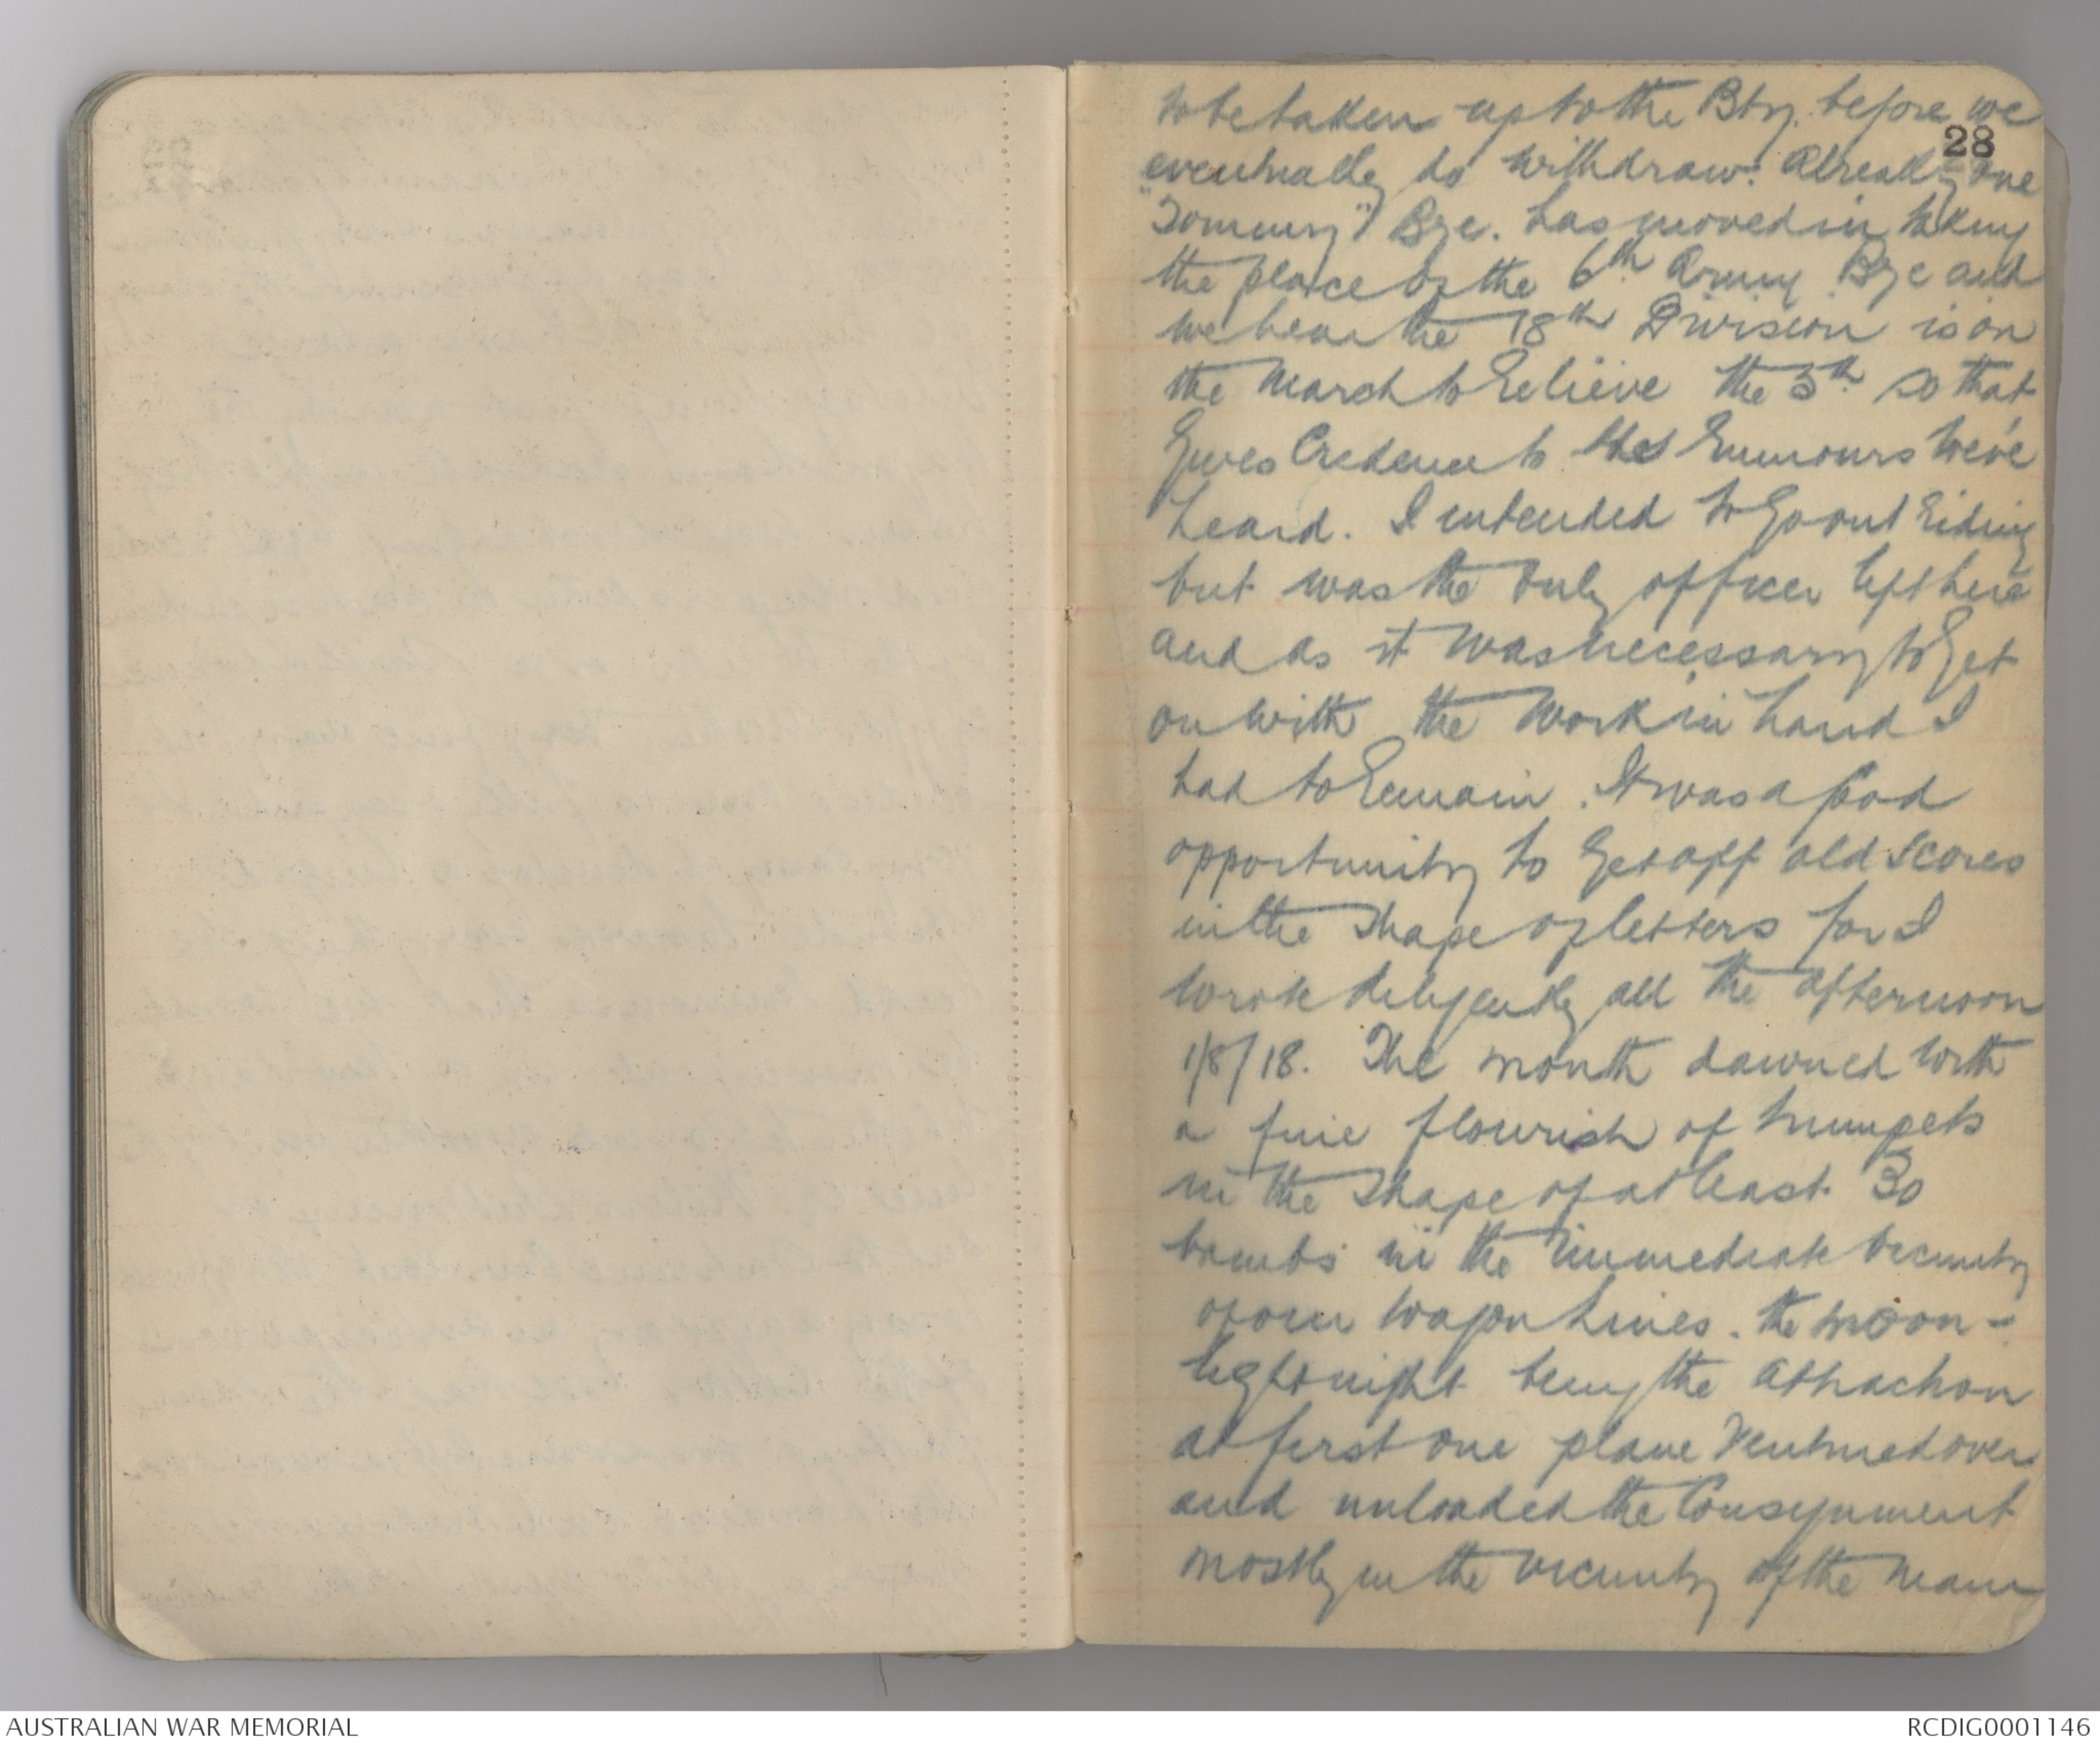 to be taken up to the Bty. before we
28
eventually do withdraw. Already one
"Tommy" Bge. has moved in taking
the place of the 6th Army Bge and
we hear the 18th Division is on
the march to relieve the 5th so that
gives credence to the rumours we've
heard. I intended to go out riding
but was the only officer left here
and as it was necessary to get
on with the work in hand I
had to remain. It was a good
opportunity to get off old scores
in the shape of letters for I
wrote diligently all the afternoon
1/8/18. The month dawned with
a fine flourish of trumpets
in the shape of at least 30
bombs in the immediate vicinity
of our wagon lines. the moon-
light night being the attraction
at first one plane ventured over
and unloaded the consignment
mostly in the vicinity of the main
AUSTRALIAN WAR MEMORIAL
RCDIG0001146